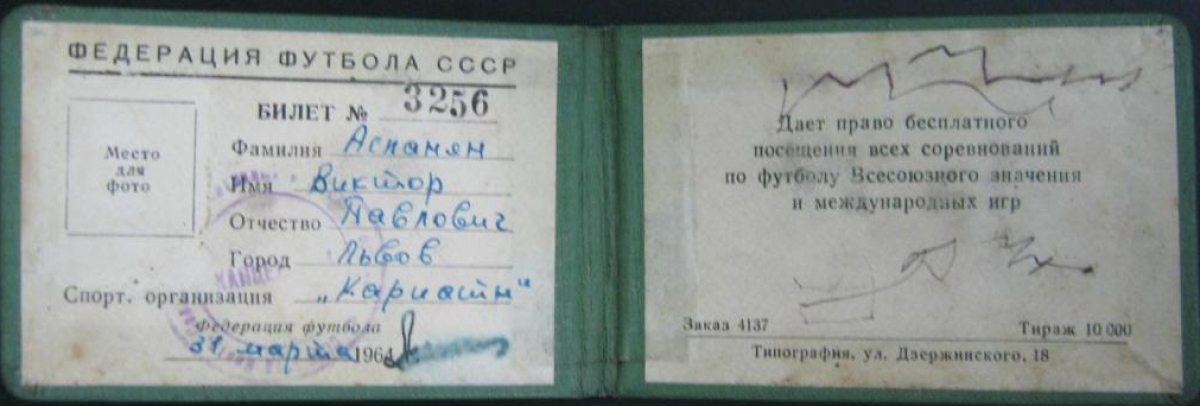 ФЕДЕРАЦИЯ ФУТБОЛА СССР
БИЛЕТ № 3256
Место
для
фото
Фамилия Аспанян
Имя Виктор
Отчество Павлович
Город Львов
Спорт. организация „Карпаты“
Федерация футбола
31 марта 1964
Дает право бесплатного
посещения всех соревнований
по футболу Всесоюзного значения
и международных игр
Заказ 4137
Тираж 10 000
Типография, ул. Дзержинского, 18